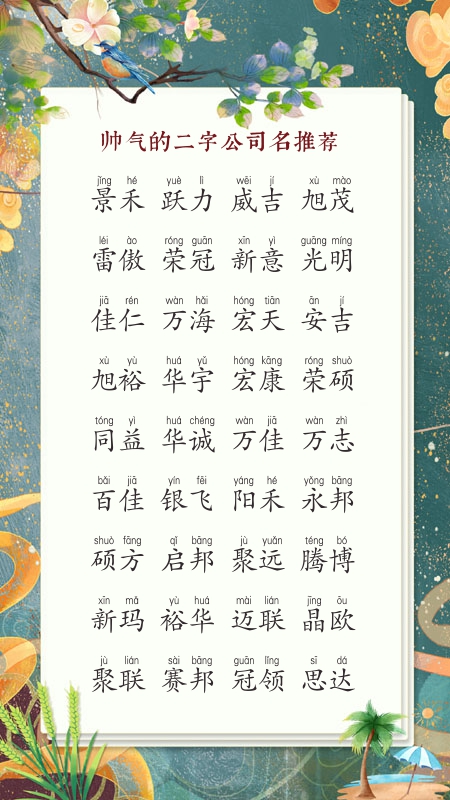 帅气的二字公司名推荐
jǐng hé yuè lì wēi jí xù mào
景禾 跃力 威吉 旭茂
léi ào róng guān xīn yì guāng míng
雷傲 荣冠 新意 光明
jiā rén wàn hǎi hóng tiān ān jí
佳仁 万海 宏天 安吉
xù yù huá yǔ hóng kāng róng shuò
旭裕 华宇 宏康 荣硕
tóng yì huá chéng wàn jiā wàn zhì
同益 华诚 万佳 万志
bǎi jiā yín fēi yáng hé yǒng bāng
百佳 银飞 阳禾 永邦
shuò fāng qǐ bāng jù yuǎn téng bó
硕方 启邦 聚远 腾博
xīn mǎ yù huá mài lián jīng ōu
新玛 裕华 迈联 晶欧
jù lián sài bāng guān lǐng sī dá
聚联 赛邦 冠领 思达